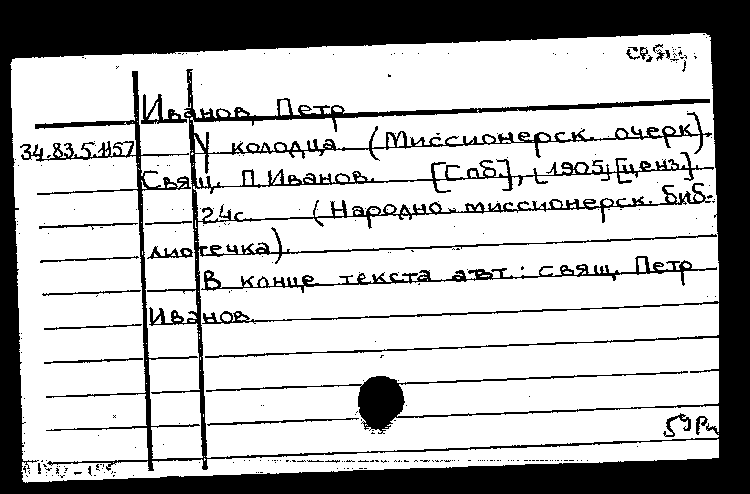 свящ.
Иванов, Петр
34.83.5.1157 У колодца. (Миссионерск. очерк).
Свящ. П. Иванов. [Спб.], [1905] [ценз.].
24с. (Народно-миссионерск. биб-
лиотечка).
В конце текста авт.: свящ. Петр
Иванов.